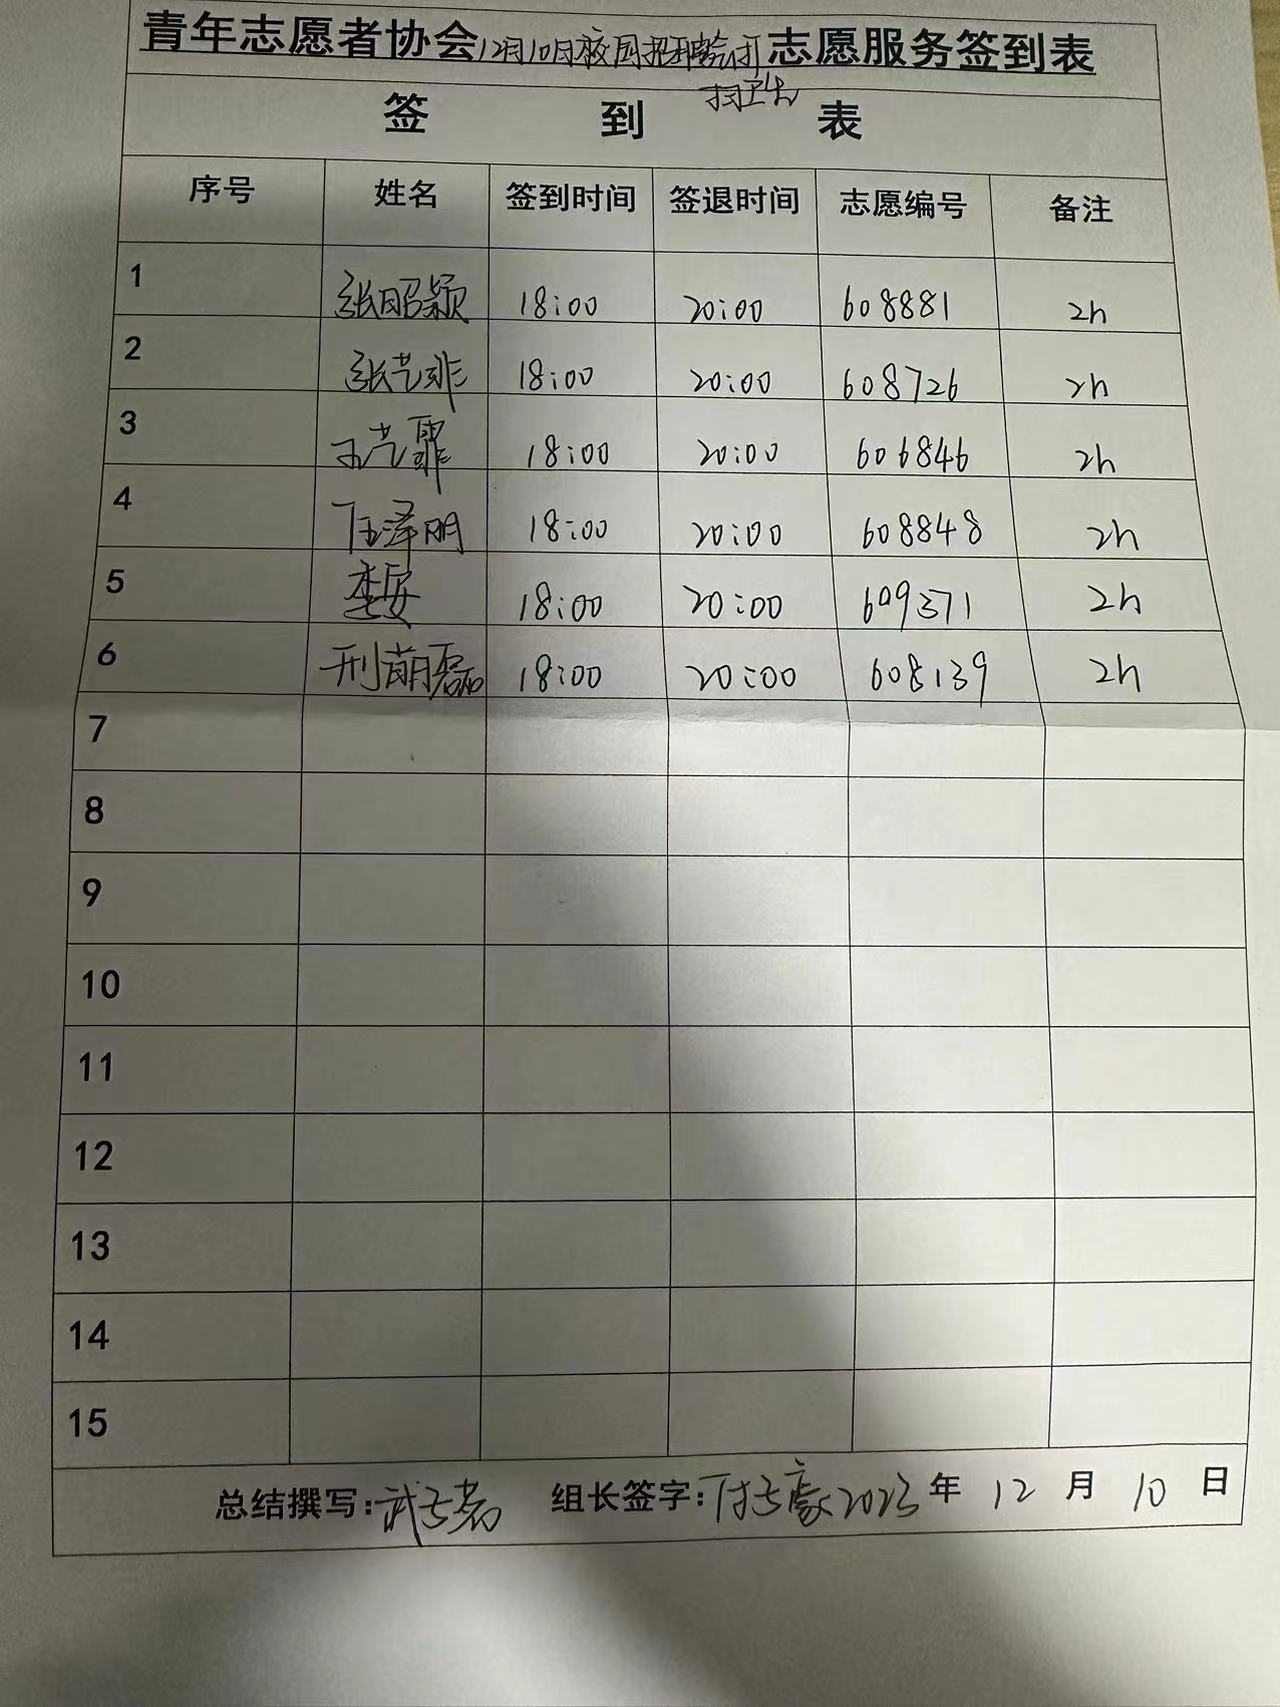 青年志愿者协会12月10日校园招聘会打志愿服务签到表
扫卫生
签 到 表
序号 姓名 签到时间 签退时间 志愿编号 备注
1 张昭颖 18:00 20:00 608881 2h
2 张艺菲 18:00 20:00 608726 2h
3 王艺霏 18:00 20:00 606846 2h
4 任泽朋 18:00 20:00 608848 2h
5 李安 18:00 20:00 609371 2h
6 刑萌磊 18:00 20:00 608139 2h
7
8
9
10
11
12
13
14
15
总结撰写:武子茗 组长签字:付子豪2023年 12 月 10 日